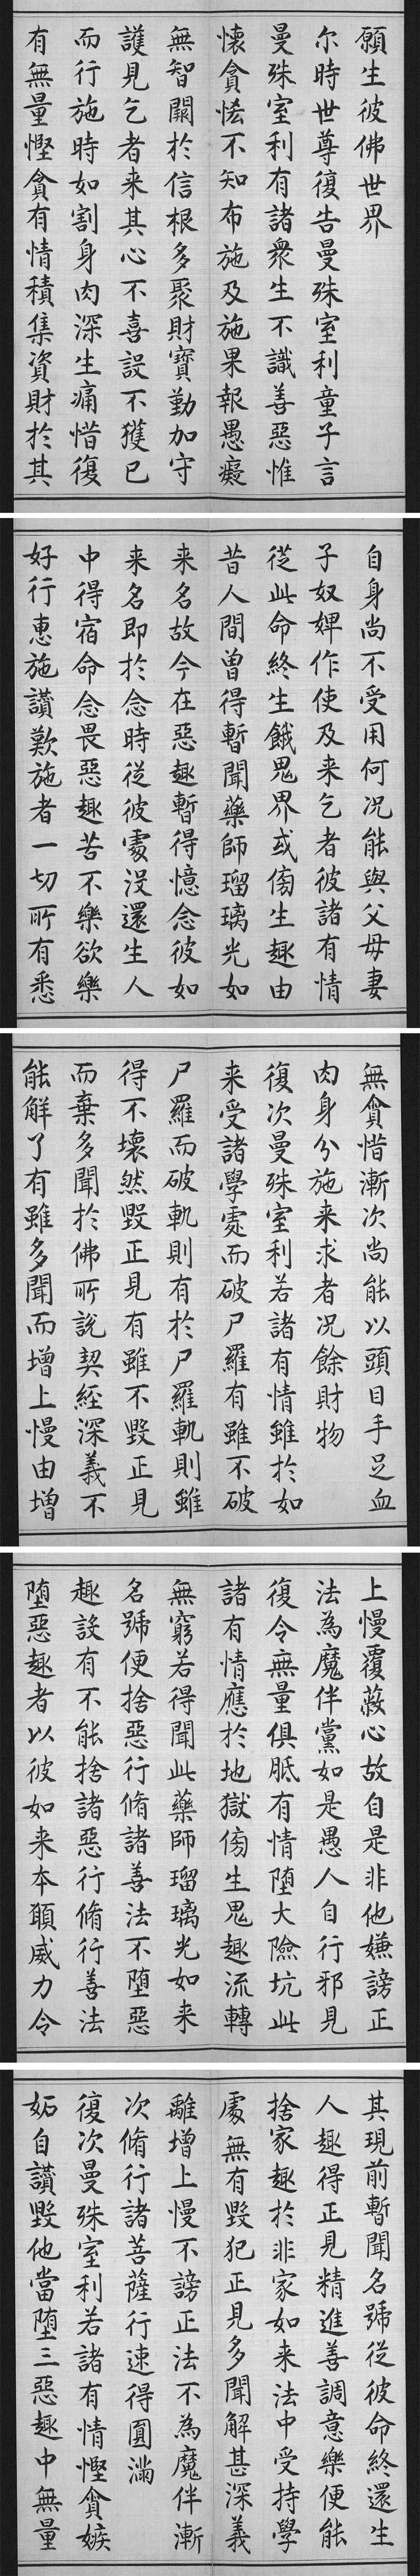 願生彼佛世界
尔時世尊復告曼殊室利童子言
曼殊室利有諸衆生不識善惡惟
懐貪悋不知布施及施果報愚癡
無智闕於信根多聚財寳勤加守
護見乞者来其心不喜設不獲已
而行施時如割身肉深生痛惜復
有無量慳貪有情積集資財於其
自身尚不受用何况能與父母妻
子奴婢作使及来乞者彼諸有情
從此命終生餓鬼界或傍生趣由
昔人間曽得暫聞藥師瑠璃光如
来名故今在惡趣暫得憶念彼如
来名即於念時從彼處没還生人
中得宿命念畏惡趣苦不樂欲樂
好行惠施讃歎施者一切所有悉
無貪惜漸次尚能以頭目手足血
肉身分施来求者况餘財物
復次曼殊室利若諸有情雖於如
来受諸學處而破尸羅有雖不破
尸羅而破軌則有於尸羅軌則雖
得不壞然毀正見有雖不毀正見
而棄多聞於佛所說契經深義不
能解了有雖多聞而增上慢由增
上慢覆蔽心故自是非他嫌謗正
法為魔伴黨如是愚人自行邪見
復令無量俱胝有情堕大險坑此
諸有情應於地獄傍生鬼趣流轉
無窮若得聞此藥師瑠璃光如来
名號便捨惡行脩諸善法不堕惡
趣設有不能捨諸惡行脩行善法
堕惡趣者以彼如来本願威力令
其現前暫聞名號從彼命終還生
人趣得正見精進善調意樂便能
捨家趣於非家如来法中受持學
處無有毀犯正見多聞解甚深義
離增上慢不謗正法不為魔伴漸
次脩行諸菩薩行速得圓滿
復次曼殊室利若諸有情慳貪嫉
妬自讃毀他當堕三惡趣中無量